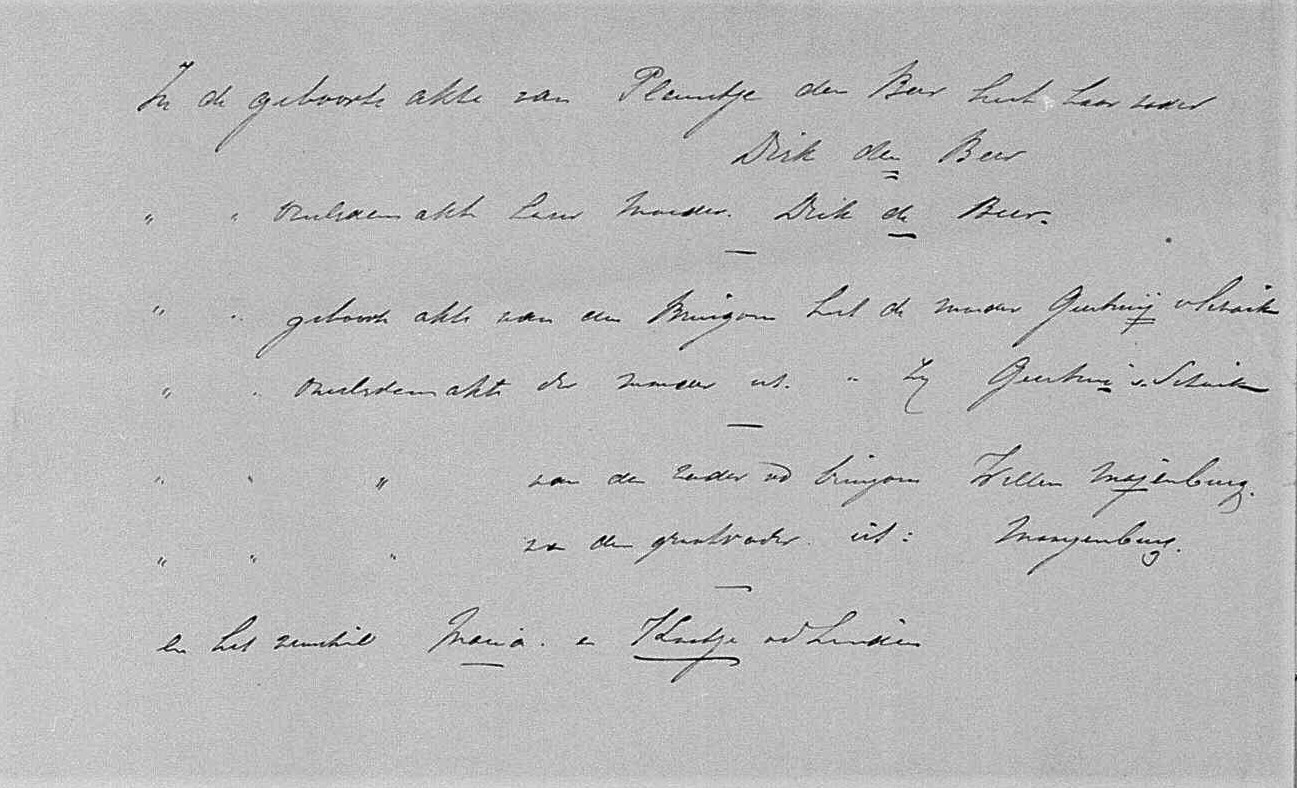 In de geboorte akte van Pleuntje den Beer heet haar vader
Dirk den Beer
" " overledens akte haar moeder. Dirk de Beer.
" " geboorte akte van den Bruigom het de moeder Geertruij v Schaik
" " overledens akte der moeder " zij Geertrui v. Schaik
" " " van den vader vd bruigom Willem Majenburg.
" " " van den grootvader. Mangenburg.
en het verschil Maria. en Klaatje vd Linden